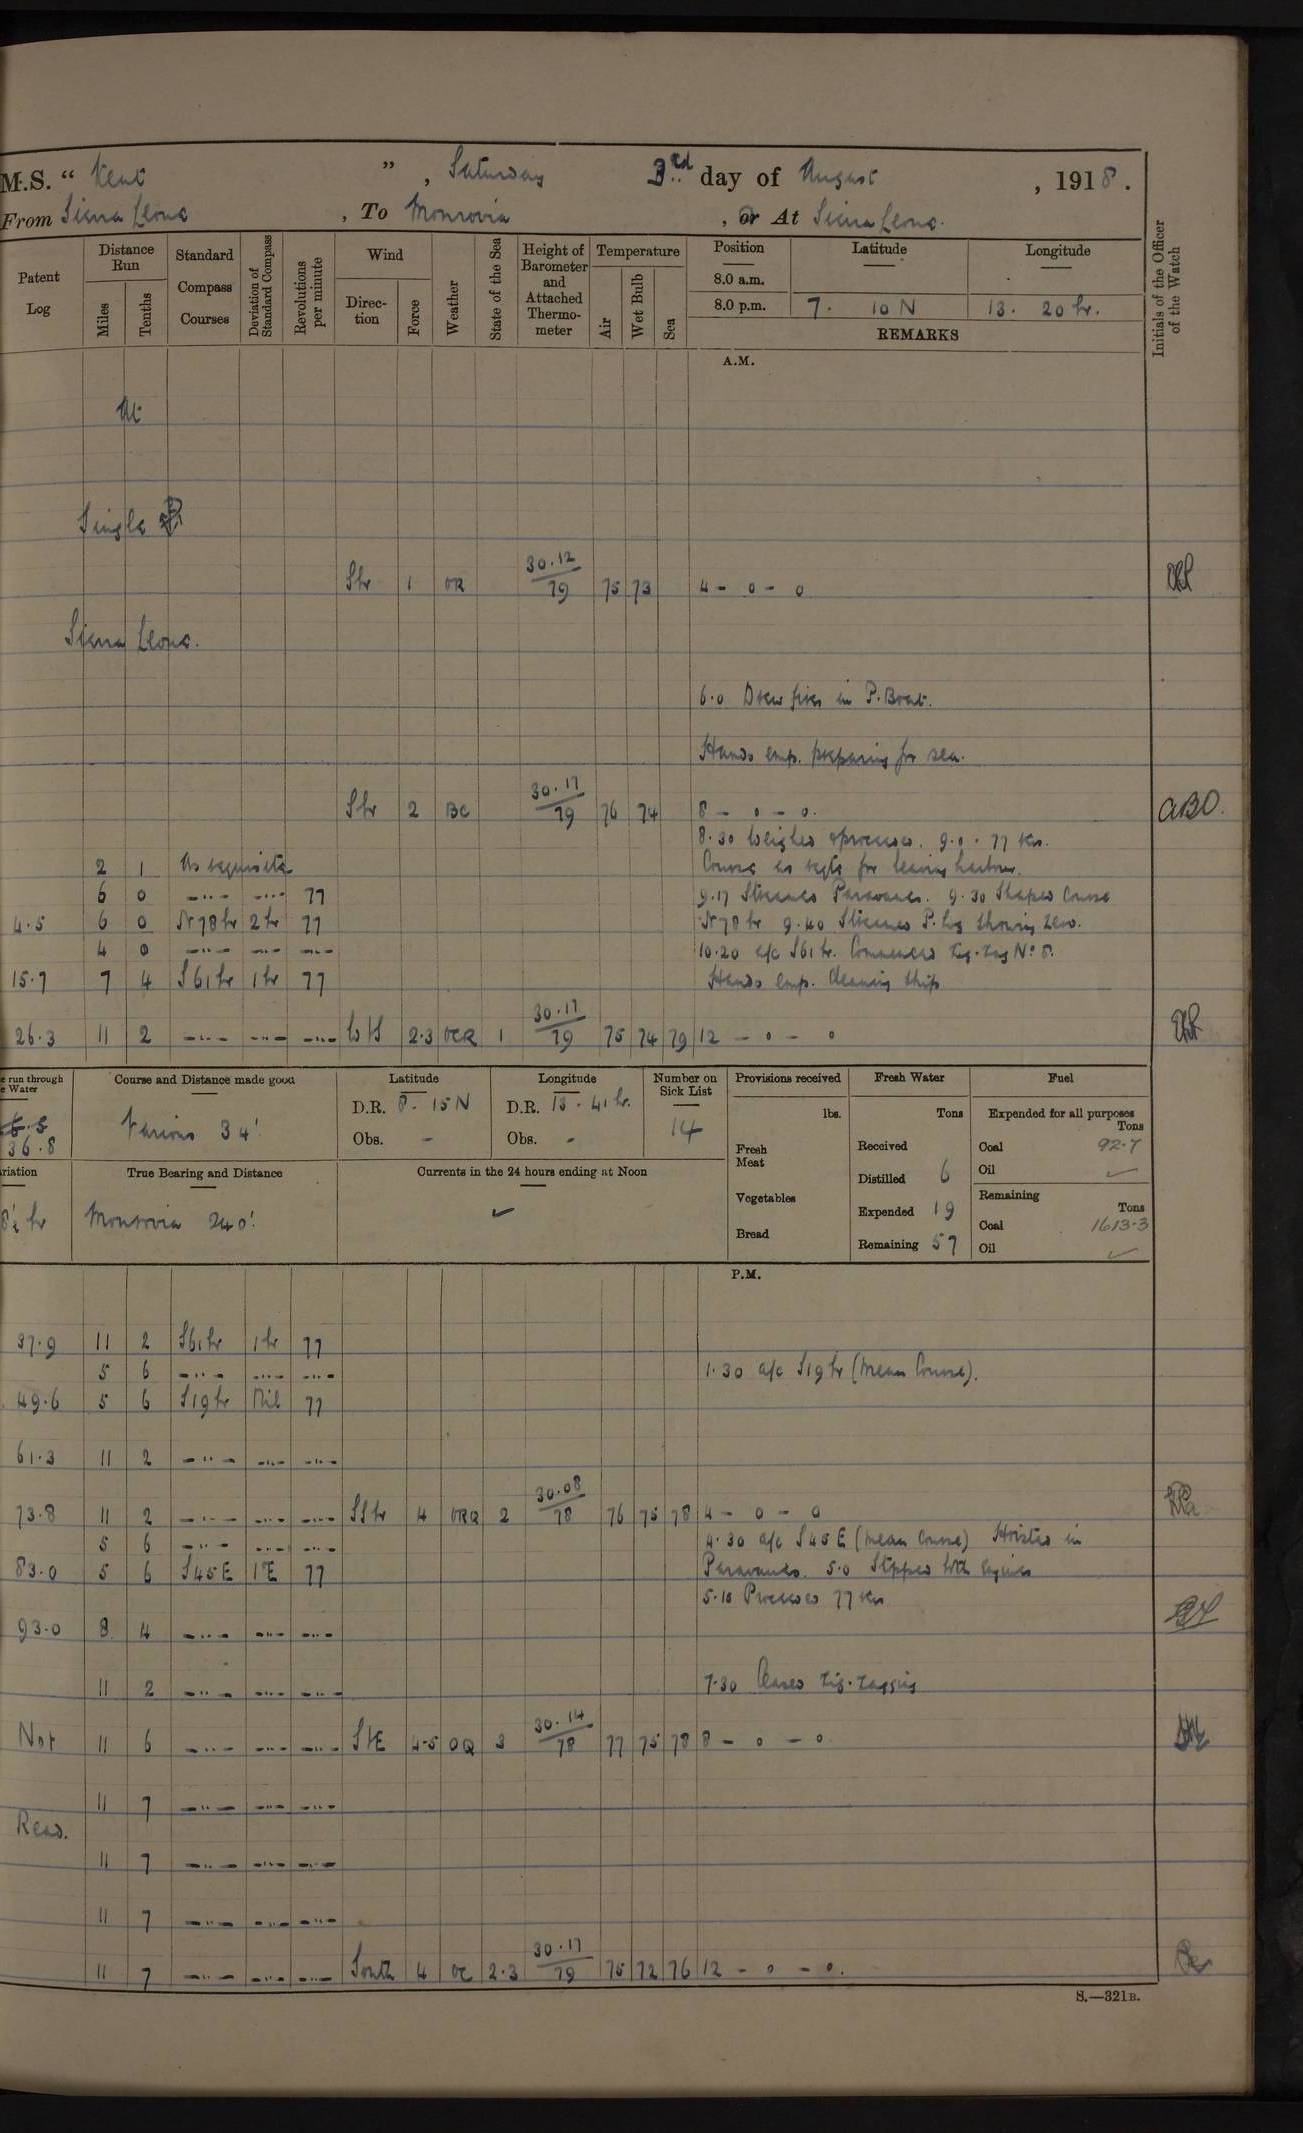 M.S. “ Kent ” , Saturday 3rd day of August , 1918 .
From Sierra Leone , To Monrovia , or At Sierra Leone.
Patent Log
Distance Run
Miles
Tenths
Standard Compass Courses
Deviation of Standard Compass
Revolutions per minute
Wind
Direction
Force
Weather
State of the Sea
Height of Barometer and Attached Thermometer
Temperature
Air
Wet Bulb
Sea
Position Latitude Longitude
8.0 a.m.
8.0 p.m. 7. 10 N 13. 20 W.
REMARKS
Initials of the Officer of the Watch
A.M.
At
Single
SW 1 OR 30.12/79 75 73 4 - 0 - 0
Sierra Leone.
6.0 Drew fires in P. Boat.
Hands emp. preparing for sea.
SW 2 BC 30.17/79 76 74 8 - 0 - 0. ABO.
8.30 Weighed & proceeded. 9.0. 77 rev.
2 1 As requisite Course as reqte for leaving harbour.
6 0 -..- -..- 77 9.17 Streamed Paravanes. 9.30 Shaped Course
4.5 6 0 N78W 2W 77 N78W 9.40 Streamed P. log showing zero.
4 0 -..- -..- -..- 10.20 a/c S61W. Commenced Zig-zag No 8.
15.7 7 4 S61W 1W 77 Hands emp. cleaning ship
26.3 11 2 -..- -..- -..- WS 2.3 OCR 1 30.17/79 75 74 79 12 - 0 - 0
e run through e Water
36.8
Course and Distance made good
Various 34'.
Latitude
D.R. 8. 15 N
Obs. -
Longitude
D.R. 13. 41 W.
Obs. -
Number on Sick List
14
Provisions received
lbs.
Fresh Meat
Vegetables
Bread
Fresh Water
Tons
Received
Distilled 6
Expended 19
Remaining 57
Fuel
Expended for all purposes
Tons
Coal 92.7
Oil ✓
Remaining
Tons
Coal 1613.3
Oil ✓
riation
True Bearing and Distance
Monrovia 240'.
Currents in the 24 hours ending at Noon
✓
P.M.
37.9 11 2 S61W 1W 77
5 6 -..- -..- -..- 1.30 a/c S19W (Mean Course).
49.6 5 6 S19W Nil 77
61.3 11 2 -..- -..- -..-
73.8 11 2 -..- -..- -..- SSW 4 ORQ 2 30.08/78 76 75 78 4 - 0 - 0
5 6 -..- -..- -..- 4.30 a/c S45E (mean course) Hoisted in
83.0 5 6 S45E 1E 77 Paravanes. 5.0 Stopped both engines
5.10 Proceeded 77 rev
93.0 8 4 -..- -..- -..-
11 2 -..- -..- -..- 7.30 Ceased zig-zagging
Not 11 6 -..- -..- -..- SxE 4-5 OQ 3 30.14/78 77 75 78 8 - 0 - 0
11 7 -..- -..- -..-
Read.
11 7 -..- -..- -..-
11 7 -..- -..- -..-
11 7 -..- -..- -..- South 4 OC 2.3 30.17/79 75 72 76 12 - 0 - 0.
S.—321B.